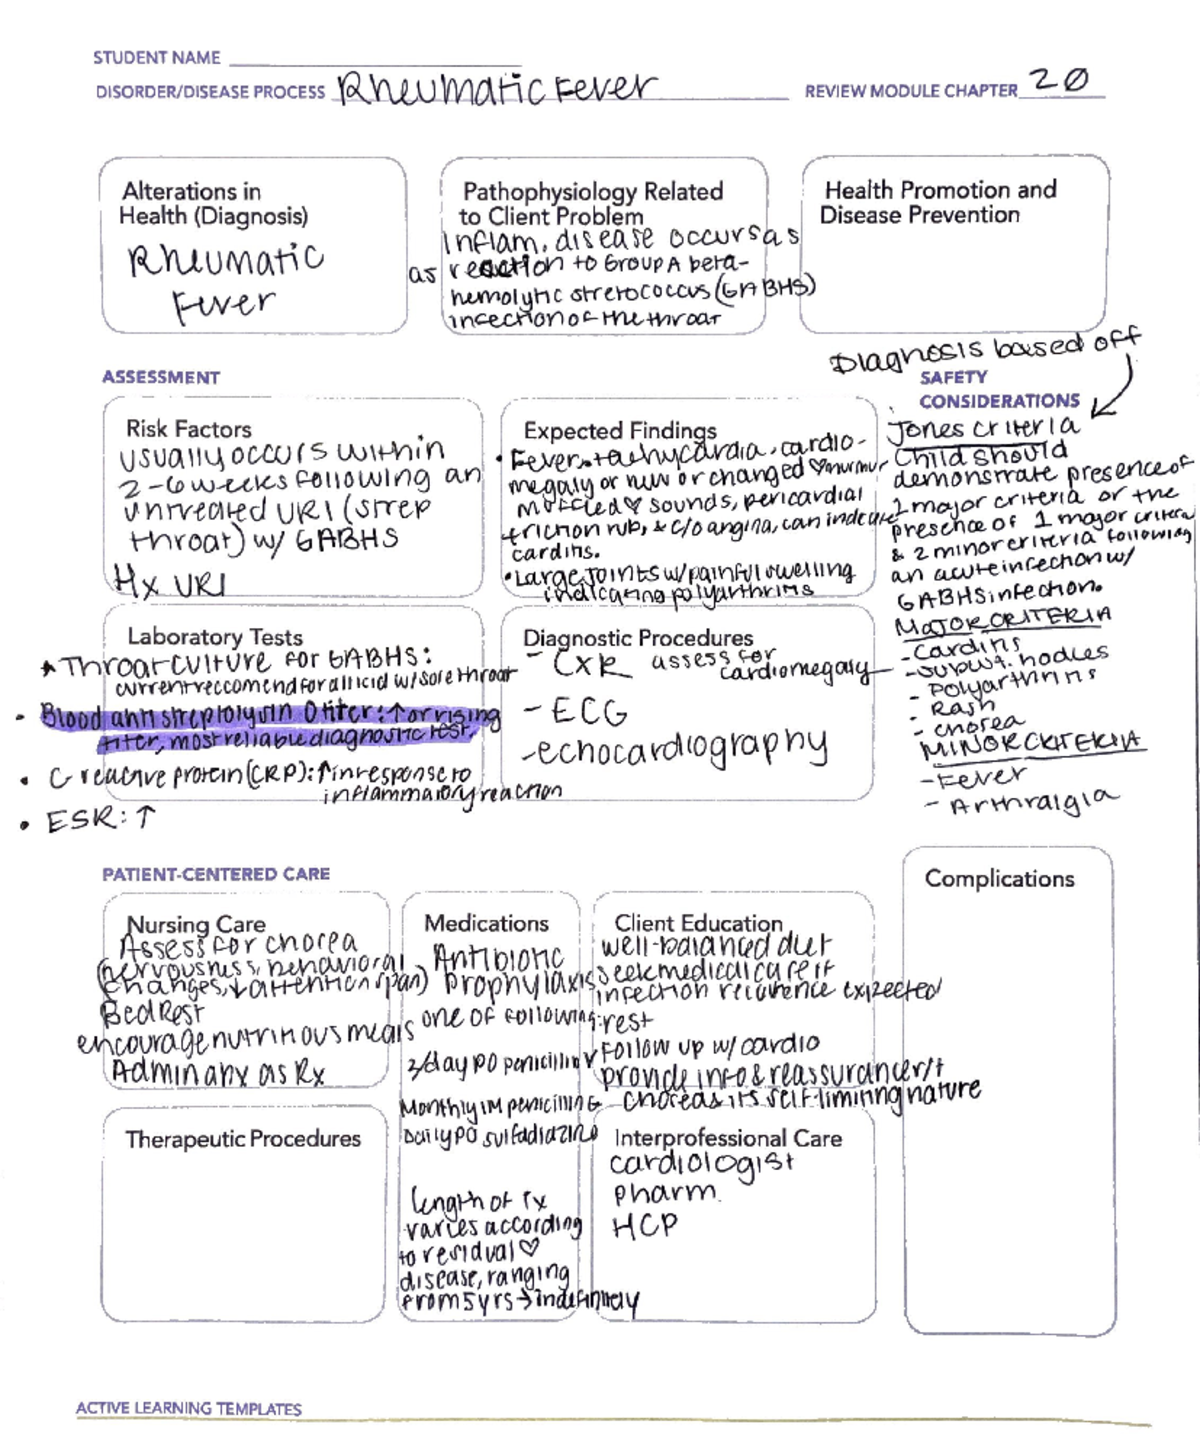 STUDENT NAME
DISORDER/DISEASE PROCESS Rheumatic Fever
REVIEW MODULE CHAPTER 20
Alterations in
Health (Diagnosis)
Rheumatic
Fever
Pathophysiology Related
to Client Problem
Inflam. disease occurs as
as reaction to Group A beta-
hemolytic stretococcus (GABHS)
infection of the throat
Health Promotion and
Disease Prevention
ASSESSMENT
Risk Factors
usually occurs within
2-6 weeks following an
untreated URI (strep
throat) w/ GABHS
Hx URI
Expected Findings
• Fever, tachycardia, cardio-
megaly or new or changed ♡ murmur
muffled ♡ sounds, pericardial
friction rub, & c/o angina, can indicate
carditis.
• Large joints w/ painful swelling
indicating polyarthritis
Diagnosis based off
SAFETY
CONSIDERATIONS
Jones criteria
Child should
demonstrate presence of
2 major criteria or the
presence of 1 major criteria
& 2 minor criteria following
an acute infection w/
GABHS infection.
MAJOR CRITERIA
- Carditis
- subcut. nodules
- Polyarthritis
- Rash
- chorea
MINOR CRITERIA
- Fever
- Arthralgia
Laboratory Tests
* Throat culture for GABHS:
current reccomend for all kid w/ sore throat
• Blood anti streptolysin O titer: ↑ or rising
titer, most reliable diagnostic test.
• C-reactive protein (CRP): ↑ in response to
inflammatory reaction
• ESR: ↑
Diagnostic Procedures
- CXR assess for
cardiomegaly
- ECG
- echocardiography
PATIENT-CENTERED CARE
Nursing Care
Assess for chorea
(nervousness, behavioral
changes, ↓ attention span)
Bed Rest
encourage nutritinous meals
Admin abx as Rx
Medications
Antibiotic
prophylaxis
one of following:
2/day PO penicillin V
Monthly IM penicillin G
Daily PO sulfadiazine
length of tx
varies according
to residual ♡
disease, ranging
from 5 yrs → indefinitely
Client Education
well-balanced diet
seek medical care if
infection recurrence expected
rest
Follow up w/ cardio
provide info & reassurance r/t
chorea & its self-limiting nature
Therapeutic Procedures
Interprofessional Care
cardiologist
pharm.
HCP
Complications
ACTIVE LEARNING TEMPLATES